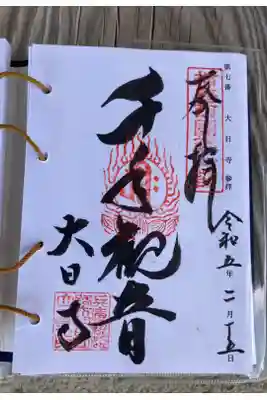 第七番 大日寺 参拝
奉拝
令和五年二月十五日
千手観音
大日寺